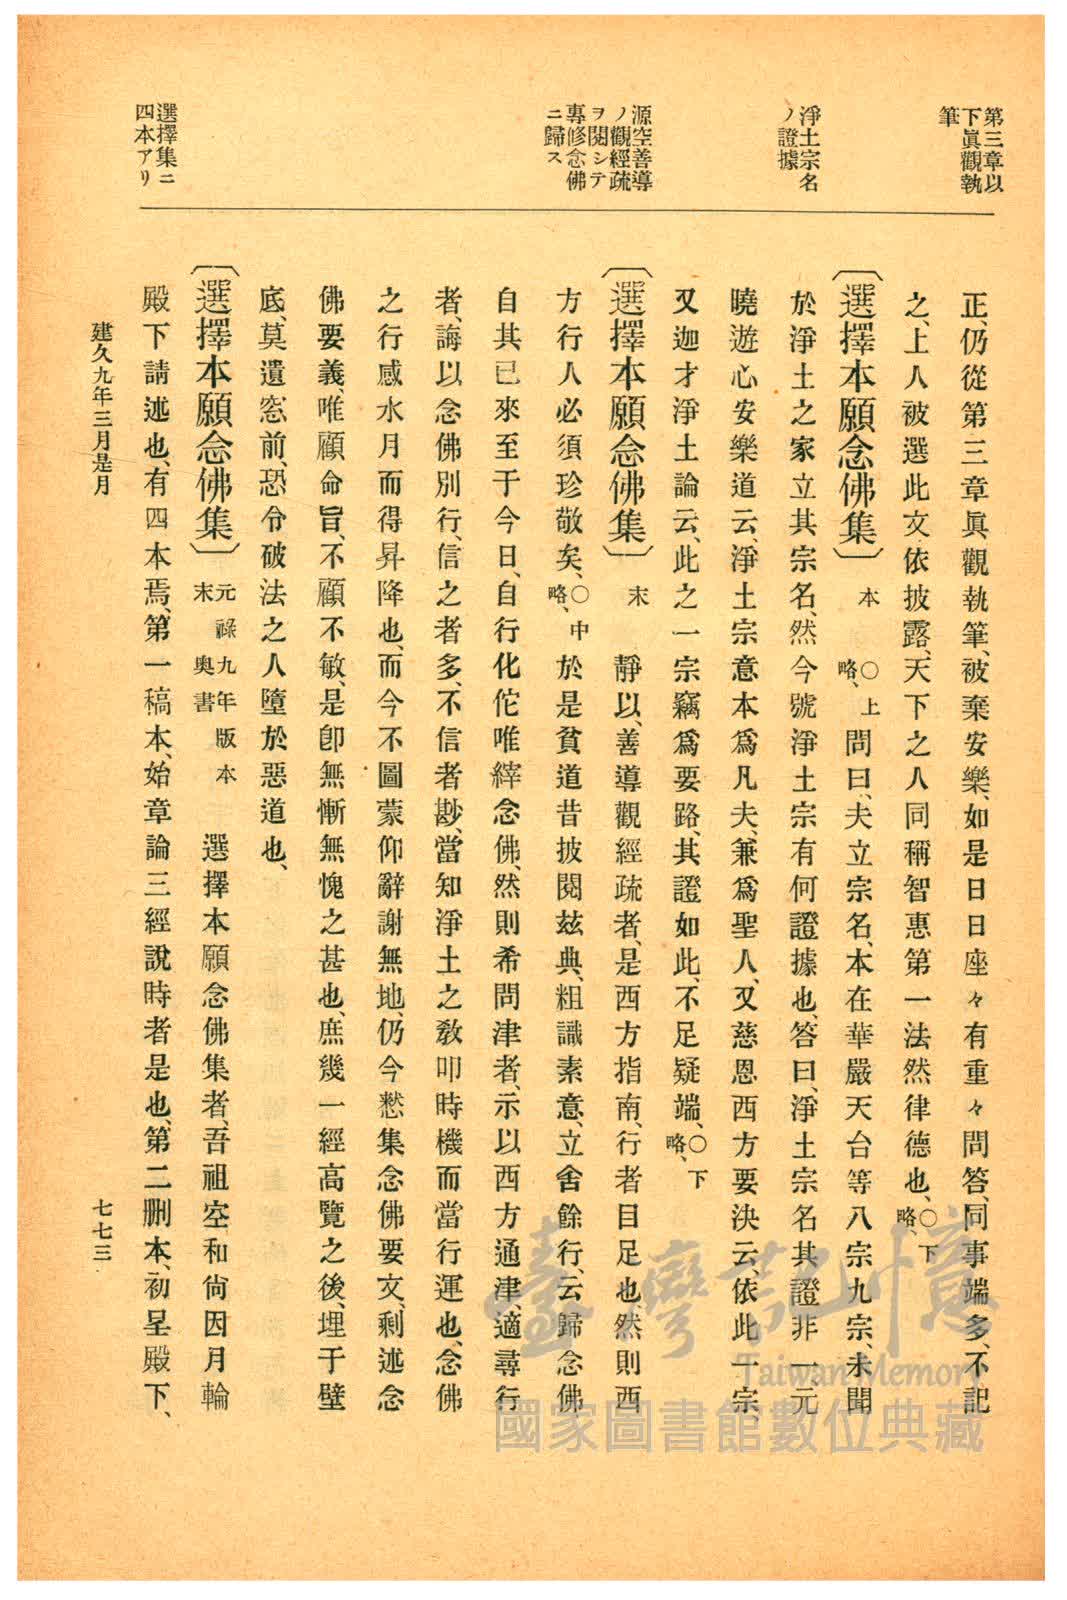 第三章以
下眞觀執
筆
淨土宗名
ノ證據
源空善導
ノ觀經疏
ヲ閱シテ
專修念佛
ニ歸ス
選擇集ニ
四本アリ
正、仍從第三章眞觀執筆、被棄安樂、如是日日座々有重々問答、同事端多、不記
之、上人被選此文依披露、天下之人同稱智惠第一法然律德也、〇下略、
〔選擇本願念佛集〕本 〇上略、問曰、夫立宗名、本在華嚴天台等八宗九宗、未聞
於淨土之家立其宗名、然今號淨土宗有何證據也、答曰、淨土宗名其證非一、元
曉遊心安樂道云、淨土宗意本爲凡夫、兼爲聖人、又慈恩西方要決云、依此一宗、
又迦才淨土論云、此之一宗竊爲要路、其證如此、不足疑端、〇下略、
〔選擇本願念佛集〕末 靜以、善導觀經疏者、是西方指南、行者目足也、然則西
方行人必須珍敬矣、〇中略、於是貧道昔披閱玆典、粗識素意、立舍餘行、云歸念佛
自其已來至于今日、自行化佗唯縡念佛、然則希問津者、示以西方通津、適尋行
者、誨以念佛別行、信之者多、不信者尠、當知淨土之敎叩時機而當行運也、念佛
之行感水月而得昇降也、而今不圖蒙仰辭謝無地、仍今憖集念佛要文、剩述念
佛要義、唯顧命旨、不顧不敏、是卽無慚無愧之甚也、庶幾一經高覽之後、埋于壁
底、莫遺窓前、恐令破法之人墮於惡道也、
〔選擇本願念佛集〕元祿九年版本末奧書 選擇本願念佛集者、吾祖空和尙因月輪
殿下請述也、有四本焉、第一稿本、始章論三經說時者是也、第二刪本、初呈殿下、
建久九年三月是月
七七三
臺灣記憶
Taiwan Memory
國家圖書館數位典藏